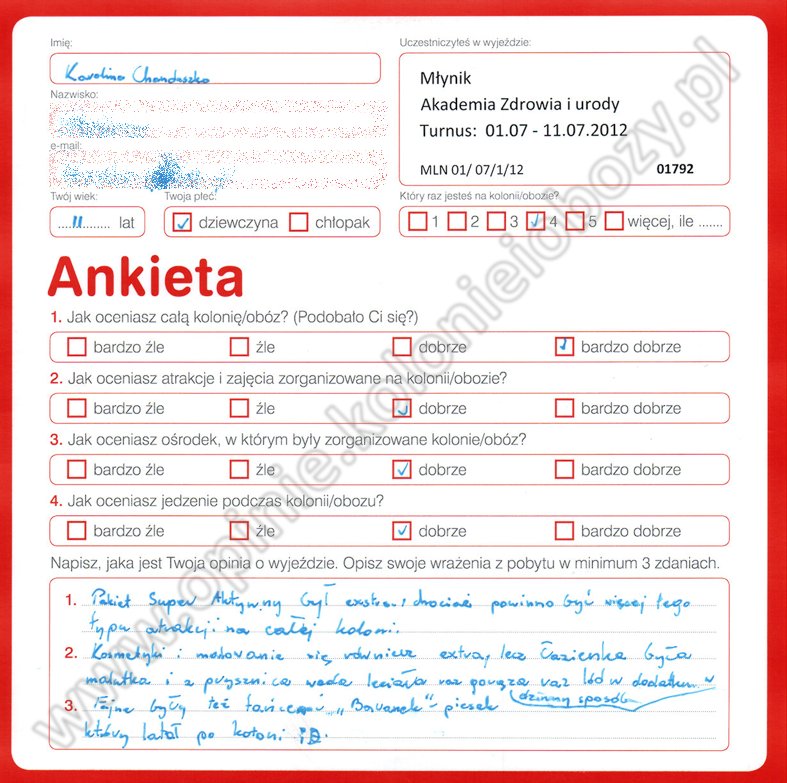 Imię:
Karolina Chandaszko
Nazwisko:
e-mail:
Twój wiek:
....11........ lat
Twoja płeć:
dziewczyna chłopak
Uczestniczyłeś w wyjeździe:
Młynik
Akademia Zdrowia i urody
Turnus: 01.07 - 11.07.2012
MLN 01/ 07/1/12 01792
Który raz jesteś na kolonii/obozie?
1 2 3 4 5 więcej, ile .......
Ankieta
1. Jak oceniasz całą kolonię/obóz? (Podobało Ci się?)
bardzo źle źle dobrze bardzo dobrze
2. Jak oceniasz atrakcje i zajęcia zorganizowane na kolonii/obozie?
bardzo źle źle dobrze bardzo dobrze
3. Jak oceniasz ośrodek, w którym były zorganizowane kolonie/obóz?
bardzo źle źle dobrze bardzo dobrze
4. Jak oceniasz jedzenie podczas kolonii/obozu?
bardzo źle źle dobrze bardzo dobrze
Napisz, jaka jest Twoja opinia o wyjeździe. Opisz swoje wrażenia z pobytu w minimum 3 zdaniach.
1. Pakiet Super Aktywny był chociaż powinno być więcej tego
typu atrakcji na całej koloni.
2. Kosmetyki i malowanie się również extra, lecz łazienka była
malutka i z prysznica woda leciała raz gorąca raz lód w dodatku w
dziwny sposób
3. Fajne były też tańce i "Baranek" - piesek
który latał po koloni :D.
www.opinie.kolonieiobozy.pl